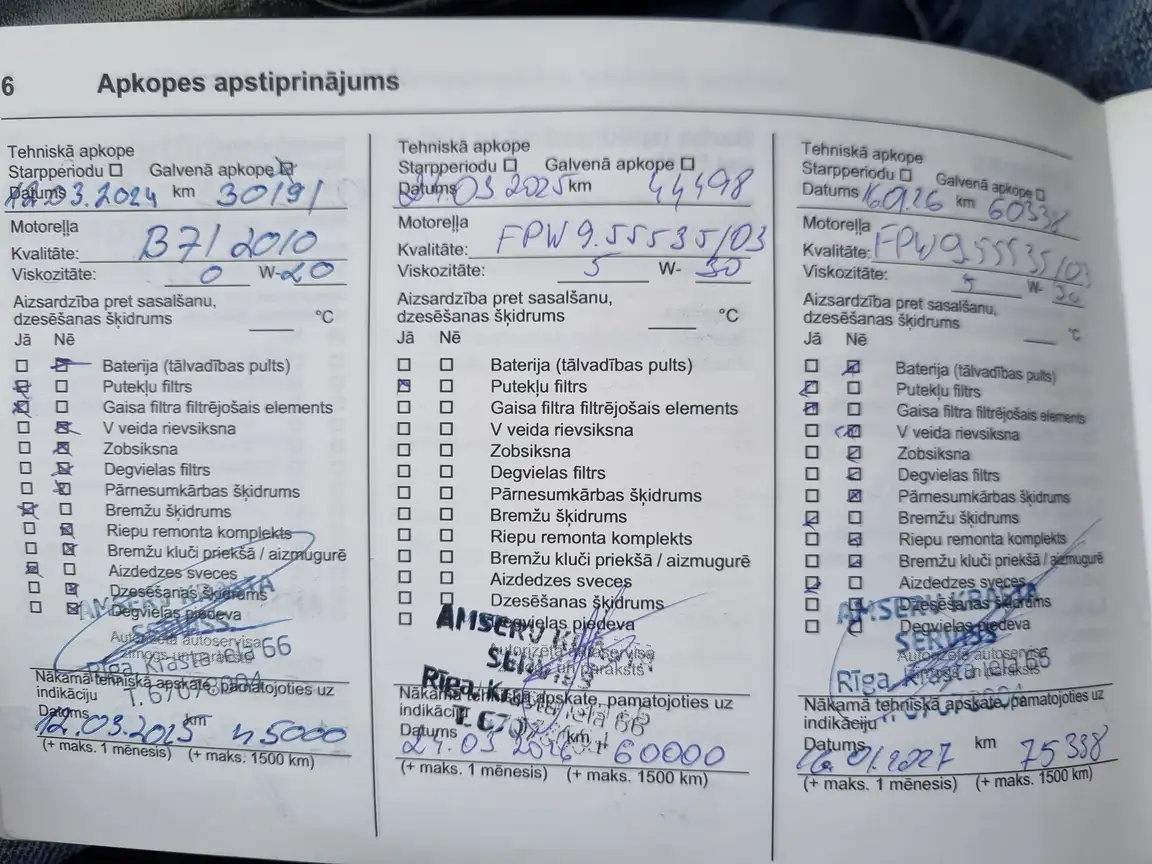 6 Apkopes apstiprinājums
Tehniskā apkope
Starpperiodu ☐ Galvenā apkope ☒
Datums 12.03.2024 km 30191
Motoreļļa
Kvalitāte: B71 2010
Viskozitāte: 0 W-20
Aizsardzība pret sasalšanu,
dzesēšanas šķidrums °C
Jā Nē
☐ ☒ Baterija (tālvadības pults)
☒ ☐ Putekļu filtrs
☒ ☐ Gaisa filtra filtrējošais elements
☐ ☒ V veida rievsiksna
☐ ☒ Zobsiksna
☐ ☒ Degvielas filtrs
☐ ☒ Pārnesumkārbas šķidrums
☒ ☐ Bremžu šķidrums
☐ ☒ Riepu remonta komplekts
☐ ☒ Bremžu kluči priekšā / aizmugurē
☒ ☐ Aizdedzes sveces
☐ ☒ Dzesēšanas šķidrums
☐ ☒ Degvielas piedeva
AMSERV KRASTA
SERVISS
Autorizēta autoservisa
zīmogs un paraksts
Rīga, Krasta iela 66
Nākamā tehniskā apskate, pamatojoties uz
indikāciju
Datums 12.03.2025 km 45000
(+ maks. 1 mēnesis) (+ maks. 1500 km)
Tehniskā apkope
Starpperiodu ☐ Galvenā apkope ☐
Datums 03 2025 km 44498
Motoreļļa
Kvalitāte: FPW 9.55535/03
Viskozitāte: 5 W- 30
Aizsardzība pret sasalšanu,
dzesēšanas šķidrums °C
Jā Nē
☐ ☐ Baterija (tālvadības pults)
☒ ☐ Putekļu filtrs
☐ ☐ Gaisa filtra filtrējošais elements
☐ ☐ V veida rievsiksna
☐ ☐ Zobsiksna
☐ ☐ Degvielas filtrs
☐ ☐ Pārnesumkārbas šķidrums
☐ ☐ Bremžu šķidrums
☐ ☐ Riepu remonta komplekts
☐ ☐ Bremžu kluči priekšā / aizmugurē
☐ ☐ Aizdedzes sveces
☐ ☐ Dzesēšanas šķidrums
☐ ☐ Degvielas piedeva
AMSERV
Autorizēta autoservisa
zīmogs un paraksts
Rīga, Krasta iela 66
Nākamā tehniskā apskate, pamatojoties uz
indikāciju
Datums 03 2026 km 60000
(+ maks. 1 mēnesis) (+ maks. 1500 km)
Tehniskā apkope
Starpperiodu ☐ Galvenā apkope ☐
Datums 16.01.26 km 60338
Motoreļļa
Kvalitāte: FPW9.55535/03
Viskozitāte: 5 W- 30
Aizsardzība pret sasalšanu,
dzesēšanas šķidrums °C
Jā Nē
☐ ☒ Baterija (tālvadības pults)
☒ ☐ Putekļu filtrs
☒ ☐ Gaisa filtra filtrējošais elements
☐ ☒ V veida rievsiksna
☐ ☒ Zobsiksna
☐ ☒ Degvielas filtrs
☐ ☒ Pārnesumkārbas šķidrums
☒ ☐ Bremžu šķidrums
☐ ☒ Riepu remonta komplekts
☐ ☒ Bremžu kluči priekšā / aizmugurē
☒ ☐ Aizdedzes sveces
☐ ☐ Dzesēšanas šķidrums
☐ ☒ Degvielas piedeva
AMSERV KRASTA
SERVISS
Autorizēta autoservisa
zīmogs un paraksts
Rīga, Krasta iela 66
Nākamā tehniskā apskate, pamatojoties uz
indikāciju
Datums 16.01.2027 km 75338
(+ maks. 1 mēnesis) (+ maks. 1500 km)